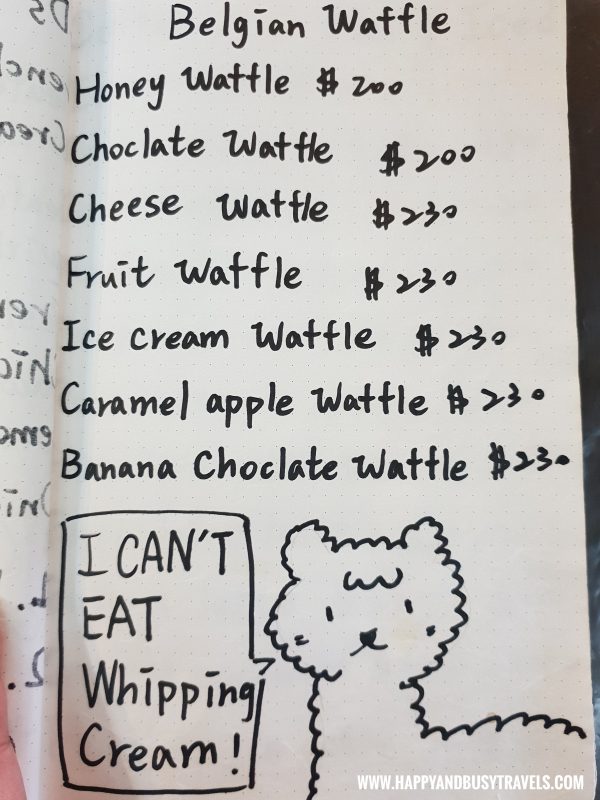 Belgian Waffle
Honey Waffle $200
Choclate Waffle $200
Cheese Waffle $230
Fruit Waffle $230
Ice cream Waffle $230
Caramel apple Waffle $230
Banana Choclate Waffle $230
I CAN'T
EAT
Whipping
Cream!
WWW.HAPPYANDBUSYTRAVELS.COM